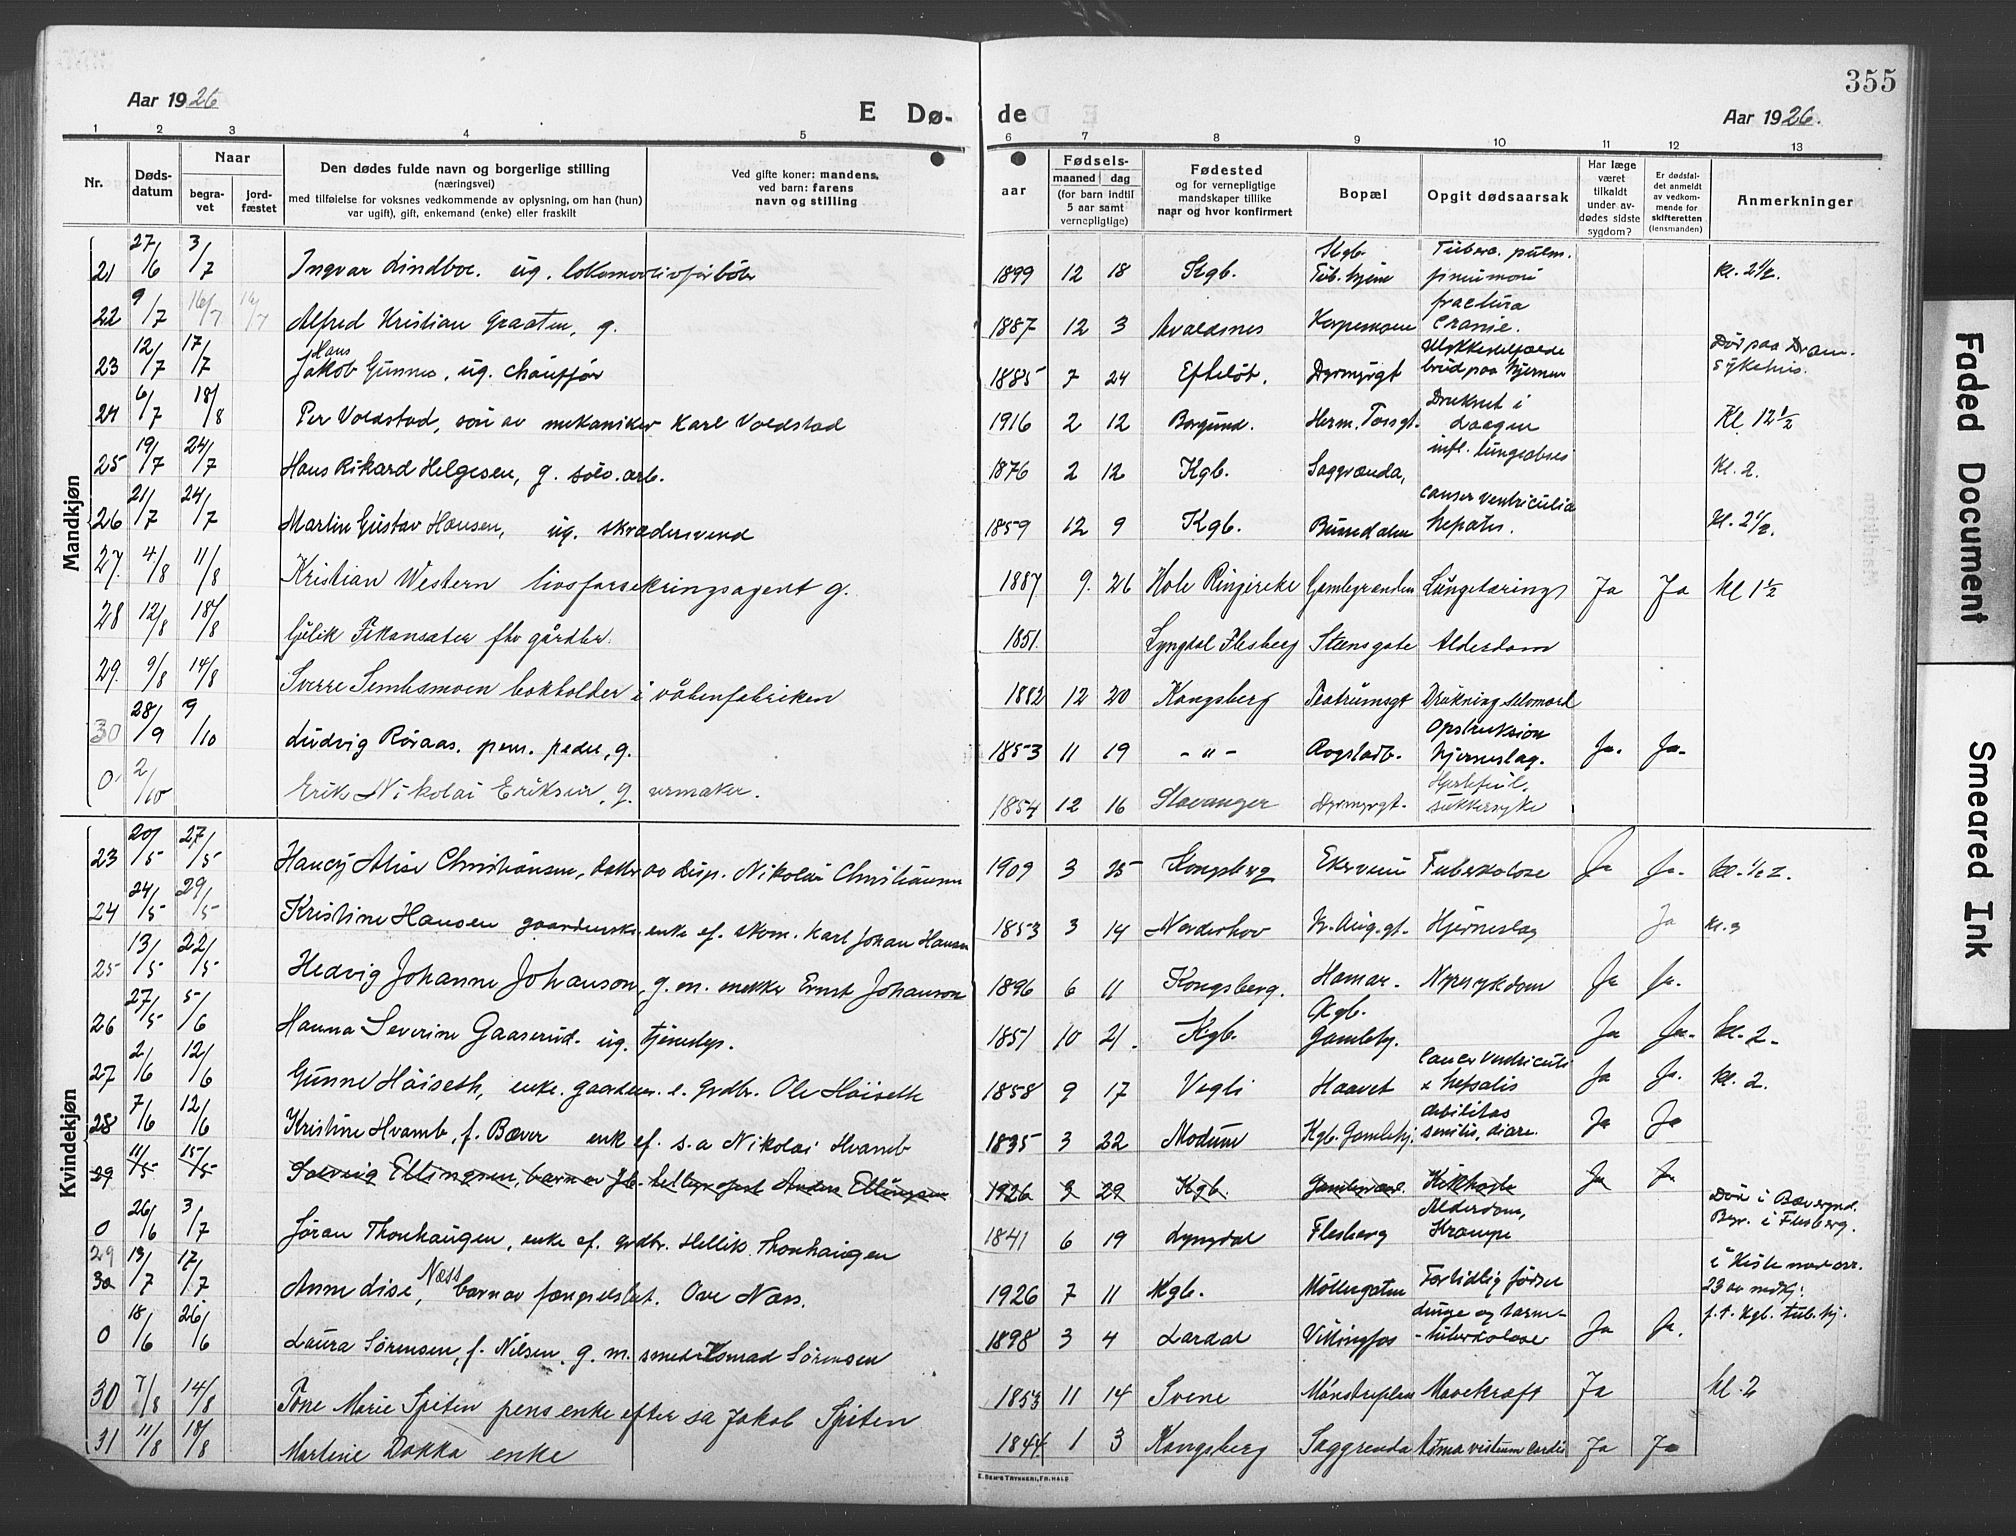 355
Aar 1926
E Dø-
de
Aar 1926.
1 2 3 4 5 6 7 8 9 10 11 12 13
Nr.
Døds-
datum
Naar
begra-
vet
jord-
fæstet
Den dødes fulde navn og borgerlige stilling
(næringsvei)
med tilføielse for voksnes vedkommende av oplysning, om han (hun)
var ugift), gift, enkemand (enke) eller fraskilt
Ved gifte koner: mandens,
ved barn: farens
navn og stilling
aar
Fødsels-
maaned dag
(for barn indtil
5 aar samt
vernepligtige)
Fødested
og for vernepligtige
mandskaper tillike
naar og hvor konfirmert
Bopæl
Opgit dødsaarsak
Har læge
været
tilkaldt
under av-
dødes sidste
sygdom?
Er dødsfal-
det anmeldt
av vedkom-
mende for
skifteretten
(lensmanden)
Anmerkninger
Mandkjøn
21 27/6 3/7 Ingvar Lindboe. ug. lokomotivfyrbøter 1899 12 18 Kgb. Kgb. Tub.hjem Tuberc. pulm. pneumoni kl. 2 1/2.
22 9/7 16/7 16/7 Alfred Kristian Graaten, g. 1887 12 3 Avaldsnes fractura cranie.
23 12/7 17/7 Hans Jakob Gunnes, ug. chauffør 1885 7 24 Efteløt. Dyrmyrgt brud paa hjernen Død paa Dram. sykehus.
24 6/7 18/8 Per Voldstad, søn av mekaniker Karl Voldstad 1916 2 12 Borgund. Herm. Fossgt. Druknet i Laagen Kl. 12 1/2
25 19/7 24/7 Hans Rikard Helgesen, g. sølv.arb. 1876 2 12 Kgb. Saggrænda, infl. lungeabses kl. 2.
26 21/7 24/7 Martin Gustav Hansen, ug. skræddersvend 1859 12 9 Kgb. cancer ventriculi hepatis. kl. 2 1/2.
27. 4/8 11/8 Kristian Western livsforsekringsagent g. 1887 9. 26 Hole Ringerike Gamlegrænden Lungetæring Ja Ja kl 1 1/2
28 12/8 18/8 Gulik Fekansæter fhv gårdbr. 1851. Lyngdal Flesberg Stensgate Alderdom
29. 9/8 14/8 Sverre Sembsmoen bokholder i våbenfabriken 1882 12 20 Kongsberg Peckelsgt Drukning selvmord
30 28/9 9/10 Ludvig Røraas. pens. pedel, g. 1853 11 19 - " - Rogstadb. Opstruksion hjerneslag. Ja. Ja-
0. 2/10 Erik Nikolai Eriksen, g. urmaker. 1854 12 16 Stavanger Dyrmyrgt. Hjertefeil, sukkersyke
Kvindekjøn
23 20/5 27/5 Haucy Alise Christiansen, datter av disp. Nikolai Christiansen 1909 3 25 Kongsberg Ekerveien Tuberkolose Ja Ja-
24 24/5 29/5 Kristine Hansen enke ef. skom. Karl Johan Hansen 1853 3 14 Norderhov Kr. Aug.gt. Hjerneslag Ja kl. 3
25 13/5 22/5 Hedvig Johanne Johanson, g. m. snekker Ernst Johanson 1896 6 11 Kongsberg. Hamar. Nyresykdom Ja Ja.
26 27/5 5/6 Hanna Severine Gaaserud. ug. tjenestep. 1851 10 21. Kgb. Kgb. Gamleby. Ja Ja- kl. 2-
27 2/6 12/6 Gunne Høiseth, enke. e. grdbr. Ole Høiseth 1858 9 17 Vegli Haavet cancer ventriculi & hepatis Ja Ja. kl. 2.
28 7/6 12/6 Kristine Hvamb, f. Bæver enke ef. s.a Nikolai Hvamb 1835 3 22 Modum Kgb. Gamleby. debilitas senilis, diare. Ja Ja
29 11/5 15/5 Solveig Ellingsen, barn av Anders Ellingsen 1926 3 29 Kgb. Kikhoste Ja Ja
0 26/6 3/7 Jøran Thonhaugen, enke ef. grdbr. Hellik Thonhaugen 1841 6 19 Lyngdal Flesberg Alderdom, Krampe Død i Bævergrd. Begr. i Flesberg.
29 30 13/7 17/7 Anne Lise Næss, barn av fængselsbet. Ove Næss. 1926 7 11 Kgb. Møllergaten For tidlig fødsel i kiste med nr. 23 av mdkj.
0 18/6 26/6 Laura Sørensen, f. Nilsen g. m. smed Konrad Sørensen 1898 3 4 Lardal Vittingfos Lunge og tarm-tuberkolose Ja Ja. f. t. Kgb. tub.hj.
30 7/8 14/8 Tone Marie Spiten pens enke efter sa Jakob Spiten 1853 11 14 Svene Mønstreplan Mavekræft Ja kl. 2
31 11/8 18/8 Martine Dokka enke 1844. 1 3 Kongsberg Saggrenda Ja Ja
E. SEM'S TRYKKERI, FR.HALD
Faded Document
Smeared Ink